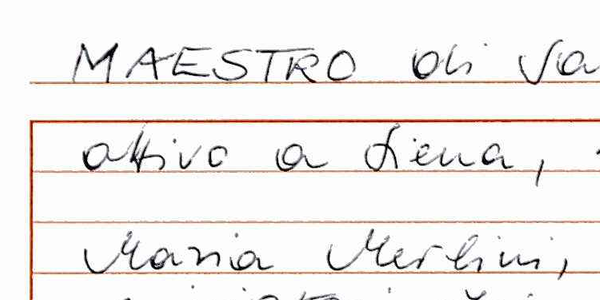 MAESTRO di Sa
attivo a Siena,
Maria Merlini,